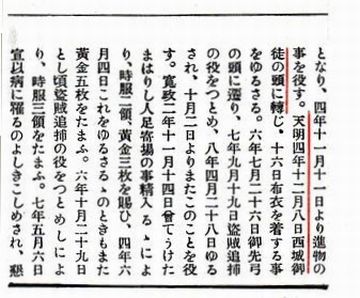 となり、四年十一月十一日より進物の
事を役す。天明四年十二月八日西城御
徒の頭に轉じ、十六日布衣を着する事
をゆるさる。六年七月二十六日御先弓
の頭に遷り、七年九月十九日盜賊追捕
の役をつとめ、八年四月二十八日ゆる
され、十月二日よりまたこのことを役
す。寛政二年十一月十四日曾てうけた
まはりし人足寄場の事精入るゝによ
り、時服二領、黃金三枚を賜ひ、四年六
月四日これをゆるさるゝのときもまた
黃金五枚をたまふ。六年十月二十九日
とし頃盜賊追捕の役をつとめしによ
り、時服三領をたまふ。七年五月六日
宣以病に罹るのよしきこしめされ、懇